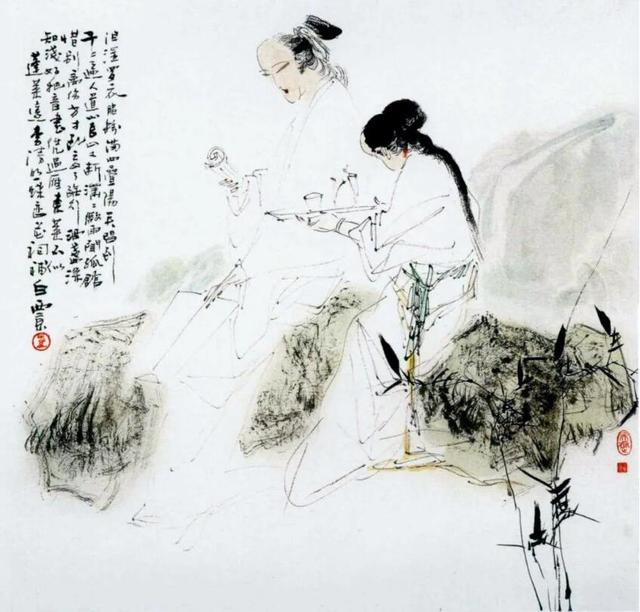 泪湿罗衣脂粉满四叠阳关唱到
千千遍人道山长山又断潇潇微雨闻孤馆
惜别离伤方寸乱忘了临行酒盏深
和浅好把音書凭過雁東萊不似
蓬萊遠李清照蝶恋花词